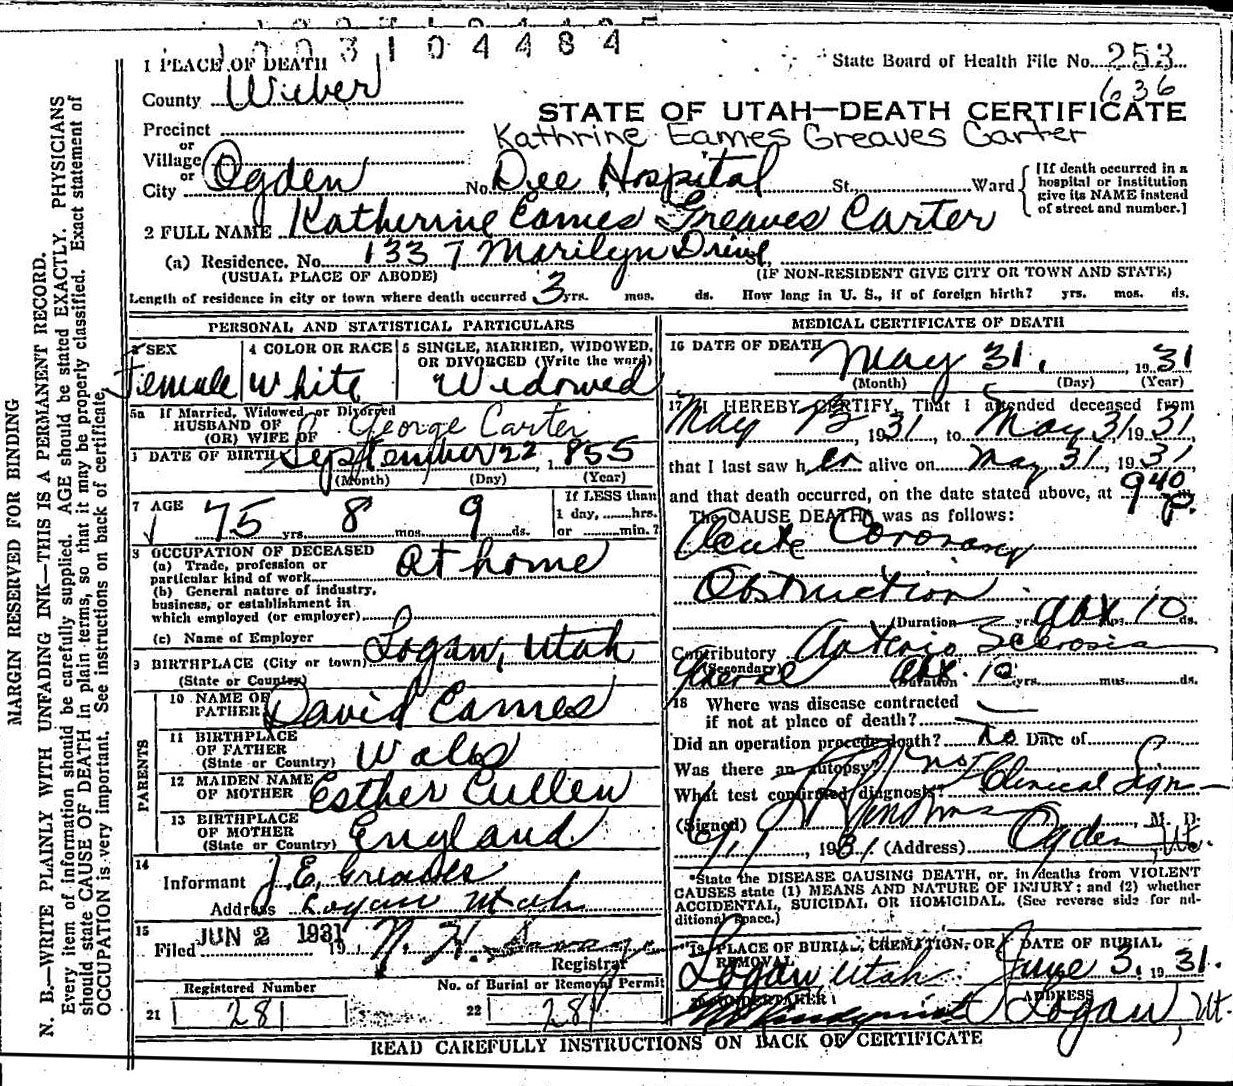 1003104484
1 PLACE OF DEATH
State Board of Health File No. 253
636
County Wieber
STATE OF UTAH—DEATH CERTIFICATE
Precinct
Kathrine Eames Greaves Carter
or
Village
or
City Ogden No. Dee Hospital St. Ward
[If death occurred in a
hospital or institution
give its NAME instead
of street and number.]
2 FULL NAME Katherine Eames Greaves Carter
(a) Residence. No. 1337 Marilyn Drive
(USUAL PLACE OF ABODE) (IF NON-RESIDENT GIVE CITY OR TOWN AND STATE)
Length of residence in city or town where death occurred 3 yrs. mos. ds. How long in U. S., if of foreign birth? yrs. mos. ds.
PERSONAL AND STATISTICAL PARTICULARS
3 SEX
Female
4 COLOR OR RACE
White
5 SINGLE, MARRIED, WIDOWED,
OR DIVORCED (Write the word)
Widowed
5a If Married, Widowed, or Divorced
HUSBAND OF
(OR) WIFE OF George Carter
DATE OF BIRTH September 22, 1855
(Month) (Day) (Year)
7 AGE
75 yrs. 8 mos. 9 ds.
If LESS than
1 day, hrs.
or min.?
8 OCCUPATION OF DECEASED
(a) Trade, profession or
particular kind of work at home
(b) General nature of industry,
business, or establishment in
which employed (or employer)
(c) Name of Employer
9 BIRTHPLACE (City or town) Logan, Utah
(State or Country)
PARENTS
10 NAME OF
FATHER David Eames
11 BIRTHPLACE
OF FATHER
(State or Country) Wales
12 MAIDEN NAME
OF MOTHER Esther Cullen
13 BIRTHPLACE
OF MOTHER
(State or Country) England
14
Informant J. E. Greaves
Address Logan Utah
15
Filed JUN 2 1931 19
Registrar
Registered Number
21 281
No. of Burial or Removal Permit
22 281
MEDICAL CERTIFICATE OF DEATH
16 DATE OF DEATH May 31, 1931
(Month) (Day) (Year)
17 I HEREBY CERTIFY, That I attended deceased from
May 13, 1931, to May 31, 1931,
that I last saw her alive on May 31, 1931,
and that death occurred, on the date stated above, at 9 40 p. m.
The CAUSE DEATH was as follows:
Acute Coronary
Obstruction
(Duration yrs. mos. ds. abx 10
Contributory Arterio Sclerosis
(Secondary)
General (Duration abx. 10 yrs. mos. ds.
18 Where was disease contracted
if not at place of death?
Did an operation precede death? no Date of
Was there an autopsy? no
What test confirmed diagnosis? Clinical Sign
(Signed) M. D.
6/1, 1931 (Address) Ogden, Ut.
*State the DISEASE CAUSING DEATH, or, in deaths from VIOLENT
CAUSES state (1) MEANS AND NATURE OF INJURY; and (2) whether
ACCIDENTAL, SUICIDAL OR HOMICIDAL. (See reverse side for ad-
ditional space.)
19 PLACE OF BURIAL, CREMATION, OR
REMOVAL
Logan, Utah
DATE OF BURIAL
June 3, 1931.
20 UNDERTAKER
ADDRESS
Logan, Ut.
READ CAREFULLY INSTRUCTIONS ON BACK OF CERTIFICATE
MARGIN RESERVED FOR BINDING
N. B.—WRITE PLAINLY WITH UNFADING INK—THIS IS A PERMANENT RECORD.
Every item of information should be carefully supplied. AGE should be stated EXACTLY. PHYSICIANS
should state CAUSE OF DEATH in plain terms, so that it may be properly classified. Exact statement of
OCCUPATION is very important. See instructions on back of certificate.